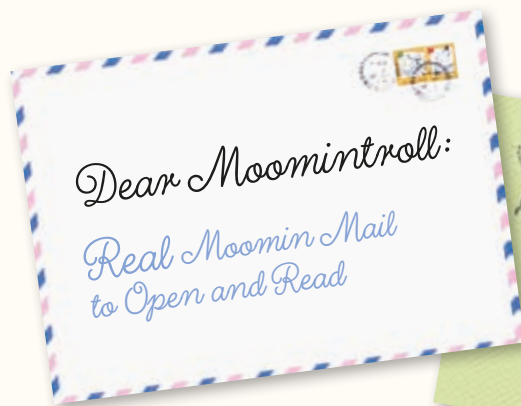 Dear Moomintroll:
Real Moomin Mail
to Open and Read